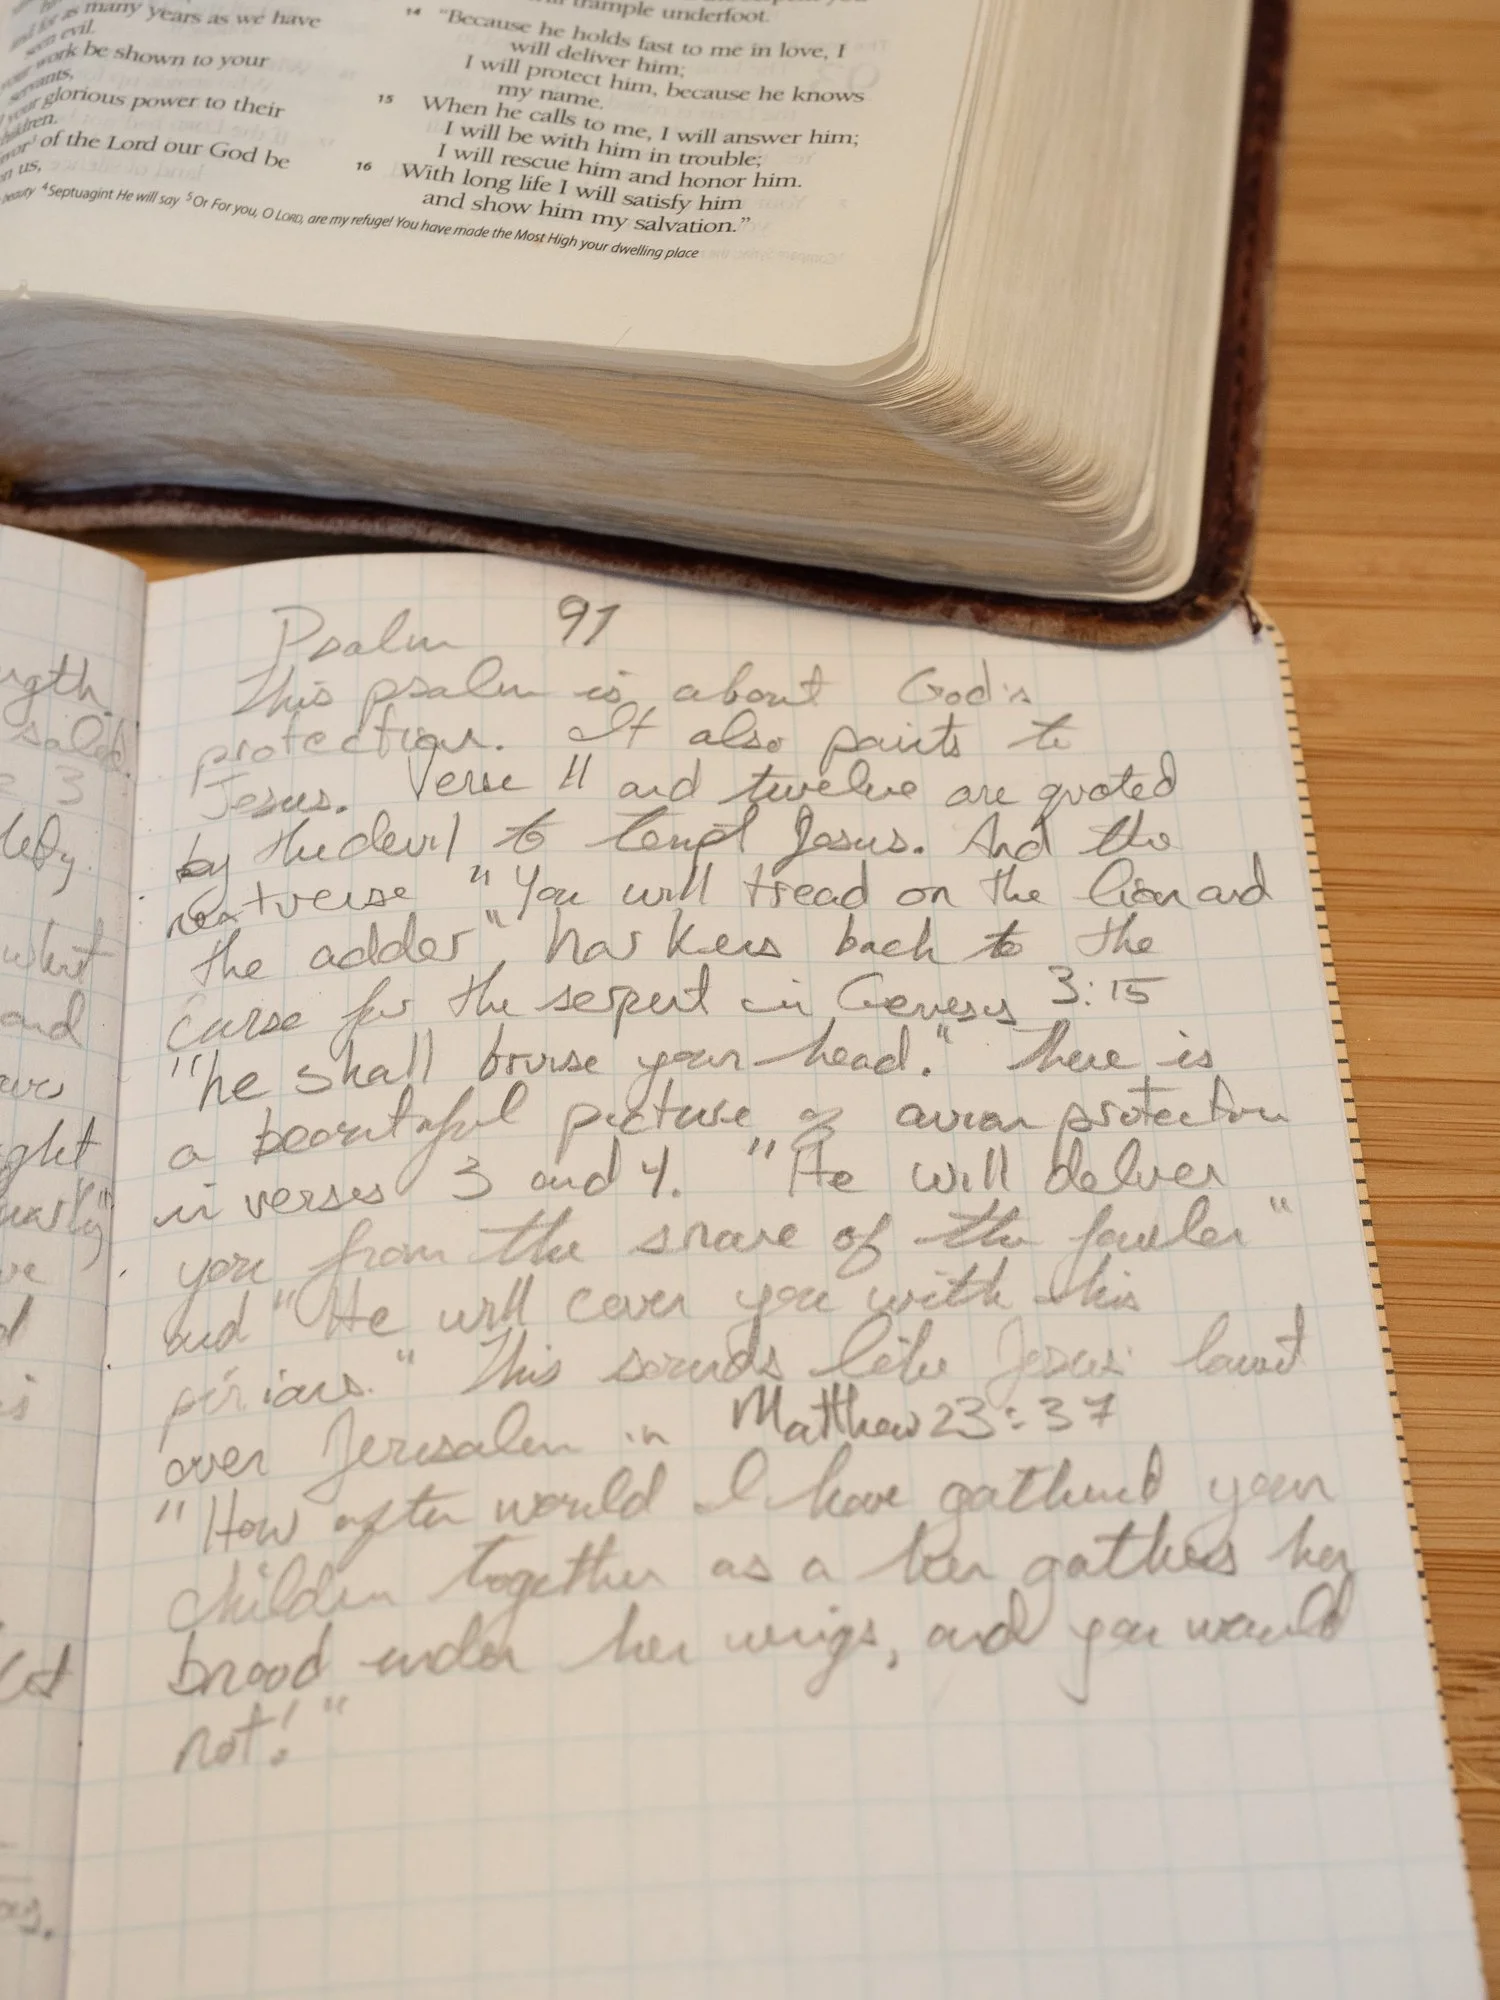 for as many years as we have
seen evil.
work be shown to your
servants,
glorious power to their
children.
of the Lord our God be
us,
trample underfoot.
14 "Because he holds fast to me in love, I
will deliver him;
I will protect him, because he knows
my name.
15 When he calls to me, I will answer him;
I will be with him in trouble;
I will rescue him and honor him.
16 With long life I will satisfy him
and show him my salvation."
beauty 4 Septuagint He will say 5 Or For you, O LORD, are my refuge! You have made the Most High your dwelling place
Psalm 91
This psalm is about God's
protection. It also points to
Jesus. Verse 11 and twelve are quoted
by the devil to tempt Jesus. And the
next verse "You will tread on the lion and
the adder" harkens back to the
curse for the serpent in Genesis 3:15
"he shall bruise your head." There is
a beautiful picture of avian protection
in verses 3 and 4. "He will deliver
you from the snare of the fowler"
and "He will cover you with his
pinions." This sounds like Jesus' lament
over Jerusalem in Matthew 23:37
"How often would I have gathered your
children together as a hen gathers her
brood under her wings, and you would
not!"
3
what
and